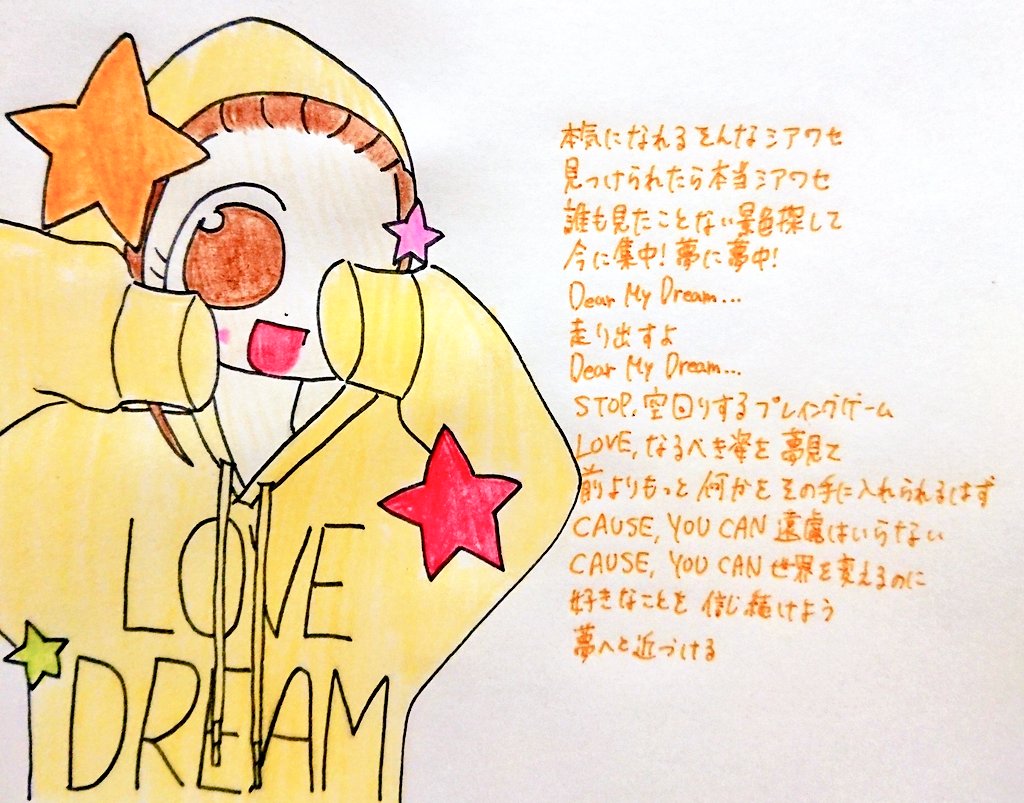 LOVE
DREAM
本気になれるそんなシアワセ
見つけられたら本当シアワセ
誰も見たことない景色探して
今に集中!夢に夢中!
Dear My Dream...
走り出すよ
Dear My Dream...
STOP, 空回りするプレイングゲーム
LOVE, なるべき姿を夢見て
前よりもっと何かをその手に入れられるはず
CAUSE, YOU CAN 遠慮はいらない
CAUSE, YOU CAN 世界を変えるのに
好きなことを信じ続けよう
夢へと近づける